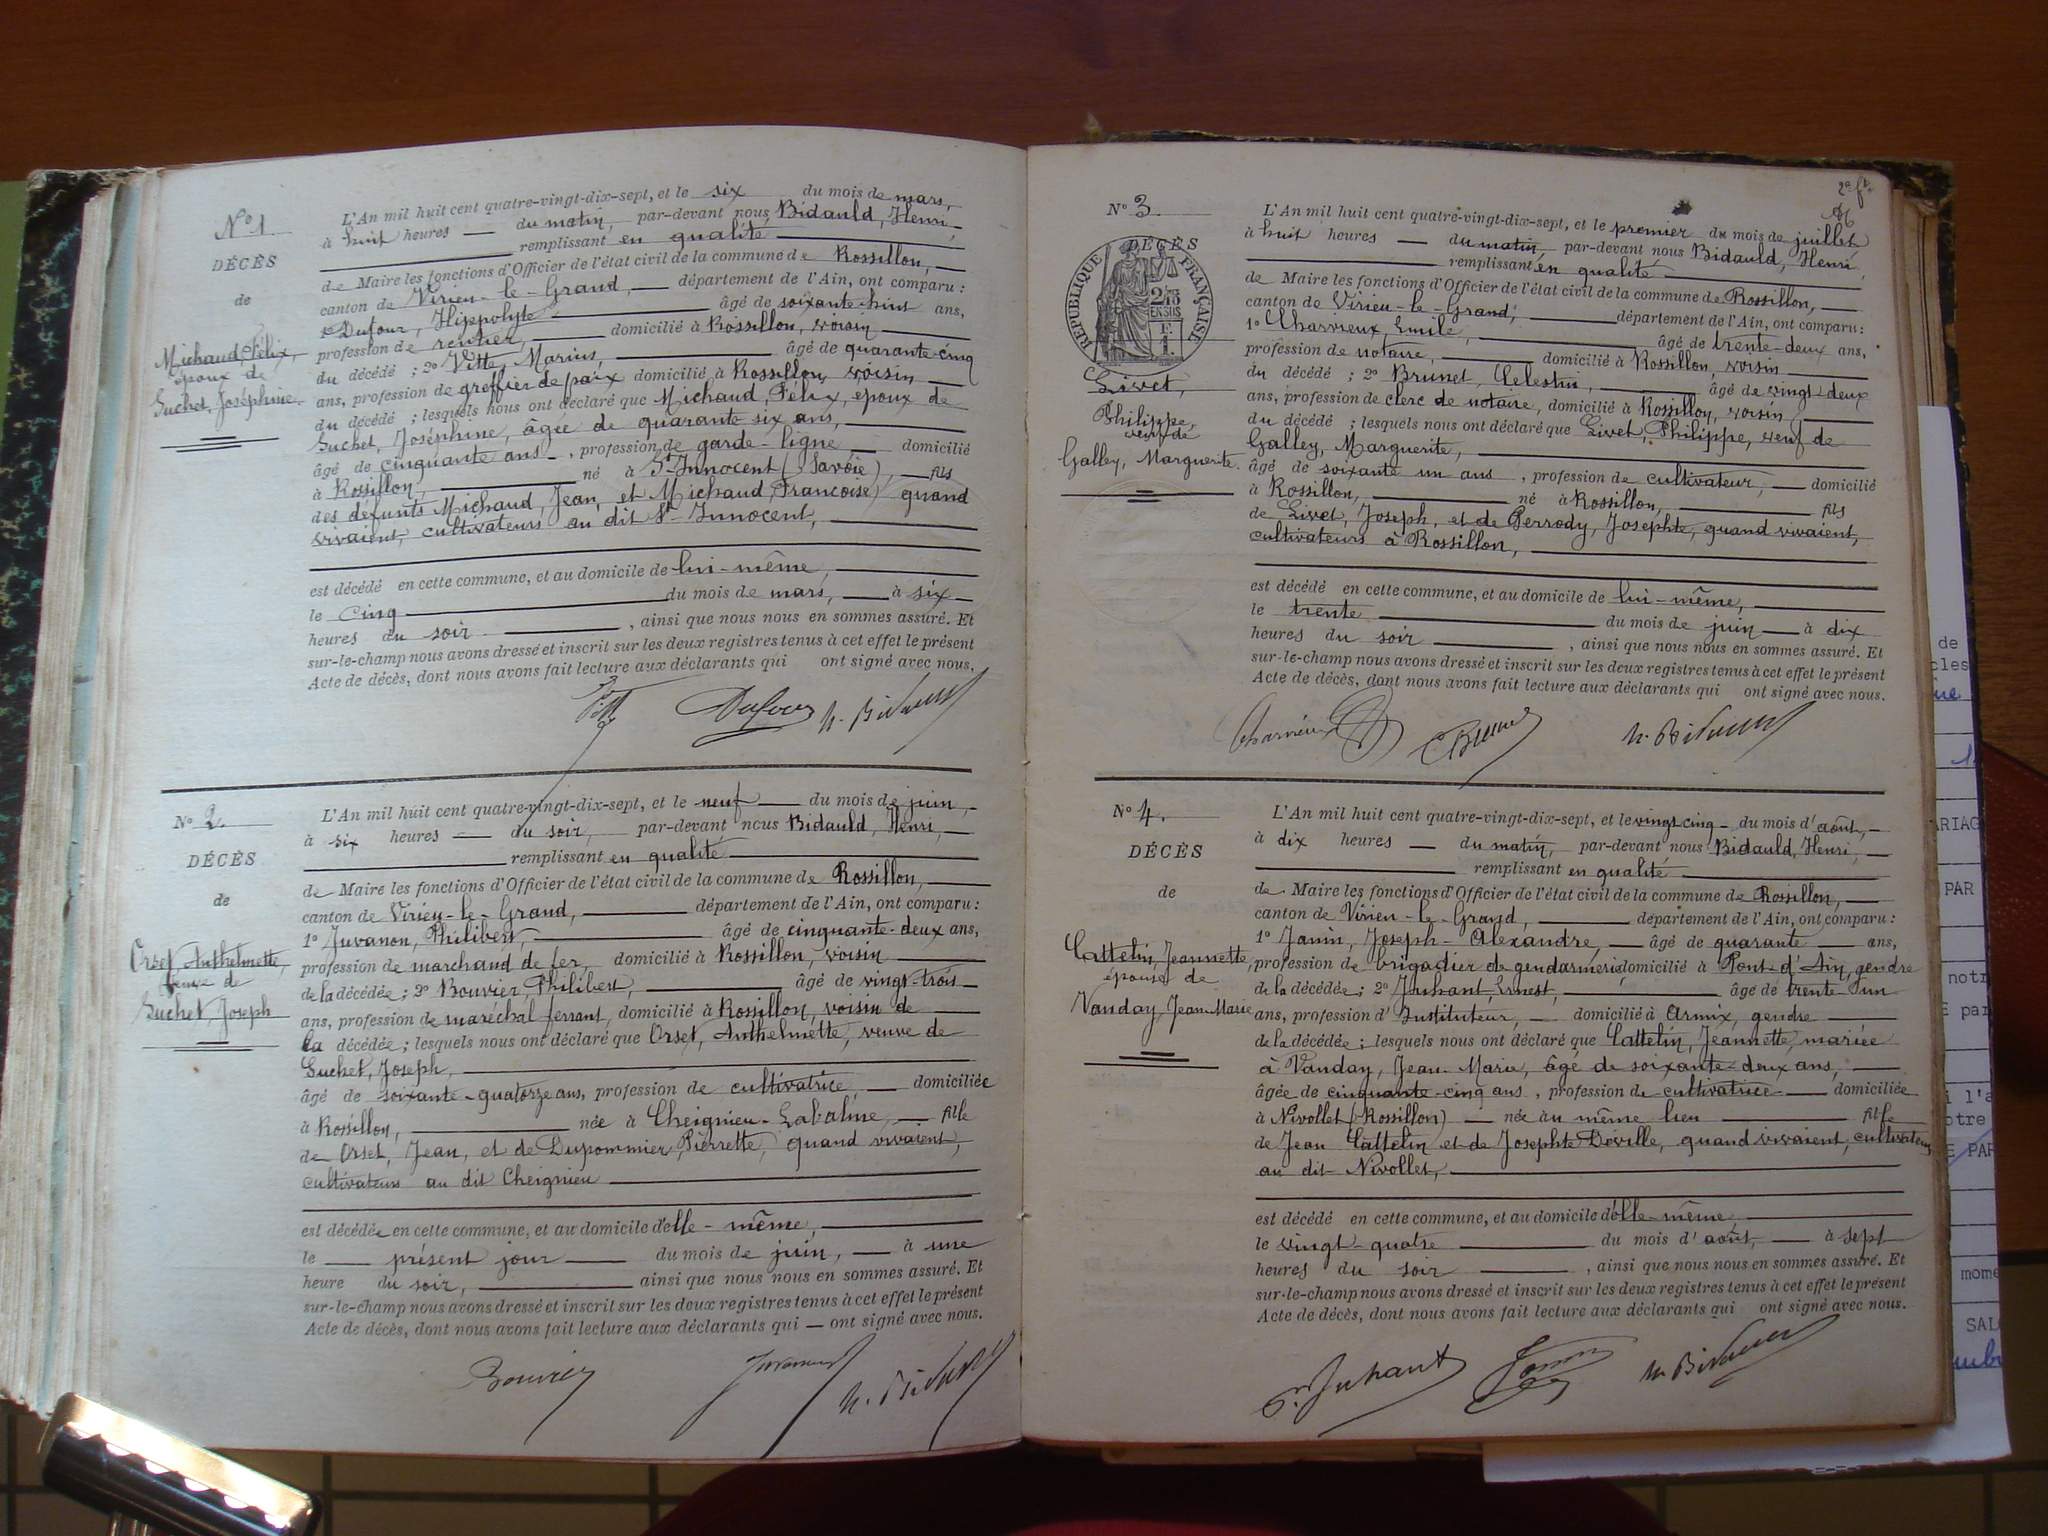 N° 1.
DÉCÈS
de
Michaud, Félix,
époux de
Suchet, Joséphine.
L'An mil huit cent quatre-vingt-dix-sept, et le six du mois de mars,
à huit heures — du matin, par-devant nous Bidauld, Henri,
remplissant en qualité
de Maire les fonctions d'Officier de l'état civil de la commune de Rossillon,
canton de Virieu-le-Grand, département de l'Ain, ont comparu :
1° Dufour, Hippolyte âgé de soixante-huit ans,
profession de rentier, domicilié à Rossillon, voisin
du décédé ; 2° Vitte, Marius, âgé de quarante-cinq
ans, profession de greffier de paix domicilié à Rossillon, voisin
du décédé ; lesquels nous ont déclaré que Michaud, Félix, époux de
Suchet, Joséphine, âgée de quarante six ans,
âgé de cinquante ans, profession de garde-ligne domicilié
à Rossillon, né à St Innocent (Savoie), fils
des défunts Michaud, Jean, et Michaud, Francoise, quand
vivaient, cultivateurs au dit St Innocent,
est décédé en cette commune, et au domicile de lui-même,
le cinq du mois de mars, à six
heures du soir, ainsi que nous nous en sommes assuré. Et
sur-le-champ nous avons dressé et inscrit sur les deux registres tenus à cet effet le présent
Acte de décès, dont nous avons fait lecture aux déclarants qui ont signé avec nous.
Dufour H. Bidauld
N° 2.
DÉCÈS
de
Orset, Anthelmette,
veuve de
Suchet, Joseph
L'An mil huit cent quatre-vingt-dix-sept, et le neuf du mois de juin,
à six heures — du soir, par-devant nous Bidauld, Henri,
remplissant en qualité
de Maire les fonctions d'Officier de l'état civil de la commune de Rossillon,
canton de Virieu-le-Grand, département de l'Ain, ont comparu :
1° Juvanon, Philibert, âgé de cinquante-deux ans,
profession de marchand de fer, domicilié à Rossillon, voisin
de la décédée ; 2° Bouvier, Philibert, âgé de vingt-trois
ans, profession de maréchal ferrant, domicilié à Rossillon, voisin de
la décédée ; lesquels nous ont déclaré que Orset, Anthelmette, veuve de
Suchet, Joseph,
âgé de soixante-quatorze ans, profession de cultivatrice, domiciliée
à Rossillon, née à Cheignieu-Labalme, fille
de Orset, Jean, et de Dupommier, Pierrette, quand vivaient,
cultivateurs au dit Cheignieu
est décédée en cette commune, et au domicile d'elle-même,
le — présent jour — du mois de juin, — à une
heure du soir, ainsi que nous nous en sommes assuré. Et
sur-le-champ nous avons dressé et inscrit sur les deux registres tenus à cet effet le présent
Acte de décès, dont nous avons fait lecture aux déclarants qui — ont signé avec nous.
Bouvier Juvanon H. Bidauld
2e ft.
N° 3.
DÉCÈS
RÉPUBLIQUE FRANÇAISE
2/10
EN SUS
1 F.
Livet,
Philippe,
veuf de
Galley, Marguerite.
L'An mil huit cent quatre-vingt-dix-sept, et le premier du mois de juillet
à huit heures — du matin, par-devant nous Bidauld, Henri,
remplissant en qualité
de Maire les fonctions d'Officier de l'état civil de la commune de Rossillon,
canton de Virieu-le-Grand, département de l'Ain, ont comparu :
1° Charvieux Emile, âgé de trente-deux ans,
profession de notaire, domicilié à Rossillon, voisin
du décédé ; 2° Brunet, Célestin, âgé de vingt-deux
ans, profession de clerc de notaire, domicilié à Rossillon, voisin
du décédé ; lesquels nous ont déclaré que Livet, Philippe, veuf de
Galley, Marguerite,
âgé de soixante un ans, profession de cultivateur, domicilié
à Rossillon, né à Rossillon, fils
de Livet, Joseph, et de Perrody, Josephte, quand vivaient,
cultivateurs à Rossillon,
est décédé en cette commune, et au domicile de lui-même,
le trente du mois de juin à dix
heures du soir, ainsi que nous nous en sommes assuré. Et
sur-le-champ nous avons dressé et inscrit sur les deux registres tenus à cet effet le présent
Acte de décès, dont nous avons fait lecture aux déclarants qui ont signé avec nous.
Charvieux C. Brunet H. Bidauld
N° 4.
DÉCÈS
de
Cattelin, Jeannette,
épouse de
Vanday, Jean-Marie
L'An mil huit cent quatre-vingt-dix-sept, et le vingt cinq du mois d'août,
à dix heures — du matin, par-devant nous Bidauld, Henri,
remplissant en qualité
de Maire les fonctions d'Officier de l'état civil de la commune de Rossillon,
canton de Virieu-le-Grand, département de l'Ain, ont comparu :
1° Janin, Joseph-Alexandre, âgé de quarante ans,
profession de brigadier de gendarmerie domicilié à Pont-d'Ain, gendre
de la décédée ; 2° Juhant, Ernest, âgé de trente-un
ans, profession d'Instituteur, domicilié à Armix, gendre
de la décédée ; lesquels nous ont déclaré que Cattelin, Jeannette, mariée
à Vanday, Jean-Marie, âgé de soixante-deux ans,
âgée de cinquante-cinq ans, profession de cultivatrice domiciliée
à Nivollet (Rossillon) née au même lieu fille
de Jean Cattelin et de Josephte Déville, quand vivaient, cultivateurs
au dit Nivollet,
est décédé en cette commune, et au domicile d'elle-même
le vingt-quatre du mois d'août, à sept
heures du soir, ainsi que nous nous en sommes assuré. Et
sur-le-champ nous avons dressé et inscrit sur les deux registres tenus à cet effet le présent
Acte de décès, dont nous avons fait lecture aux déclarants qui ont signé avec nous.
E. Juhant Janin H. Bidauld
de
cles
PAR
notr
E par
i l'a
otre
E PAR
mome